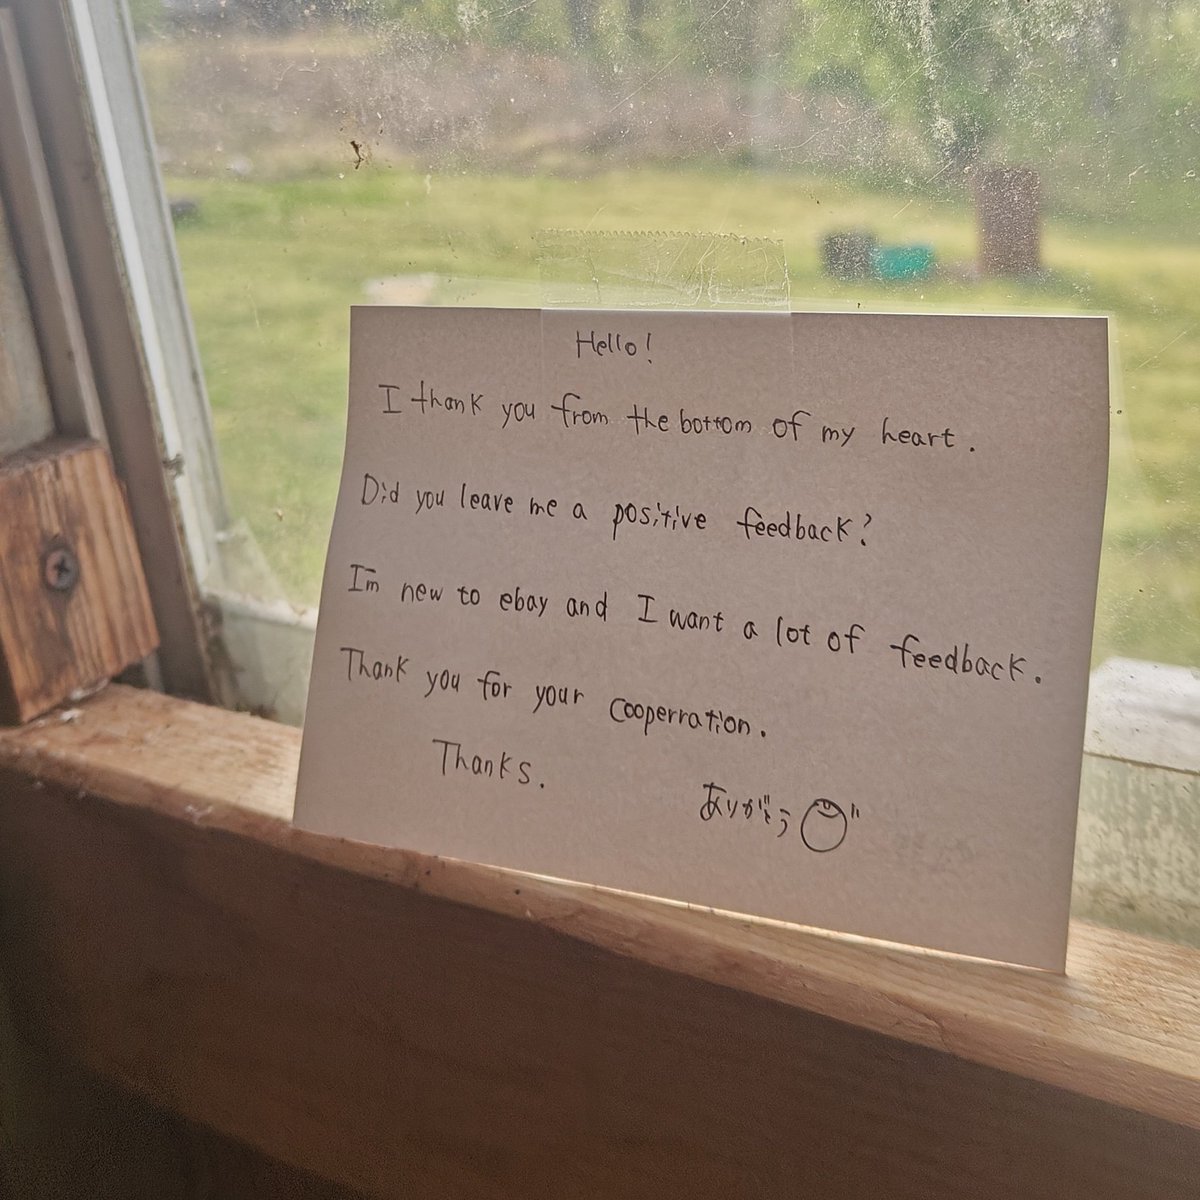 Hello!
I thank you from the bottom of my heart.
Did you leave me a positive feedback?
I'm new to ebay and I want a lot of feedback.
Thank you for your cooperration.
Thanks.
ありがとう